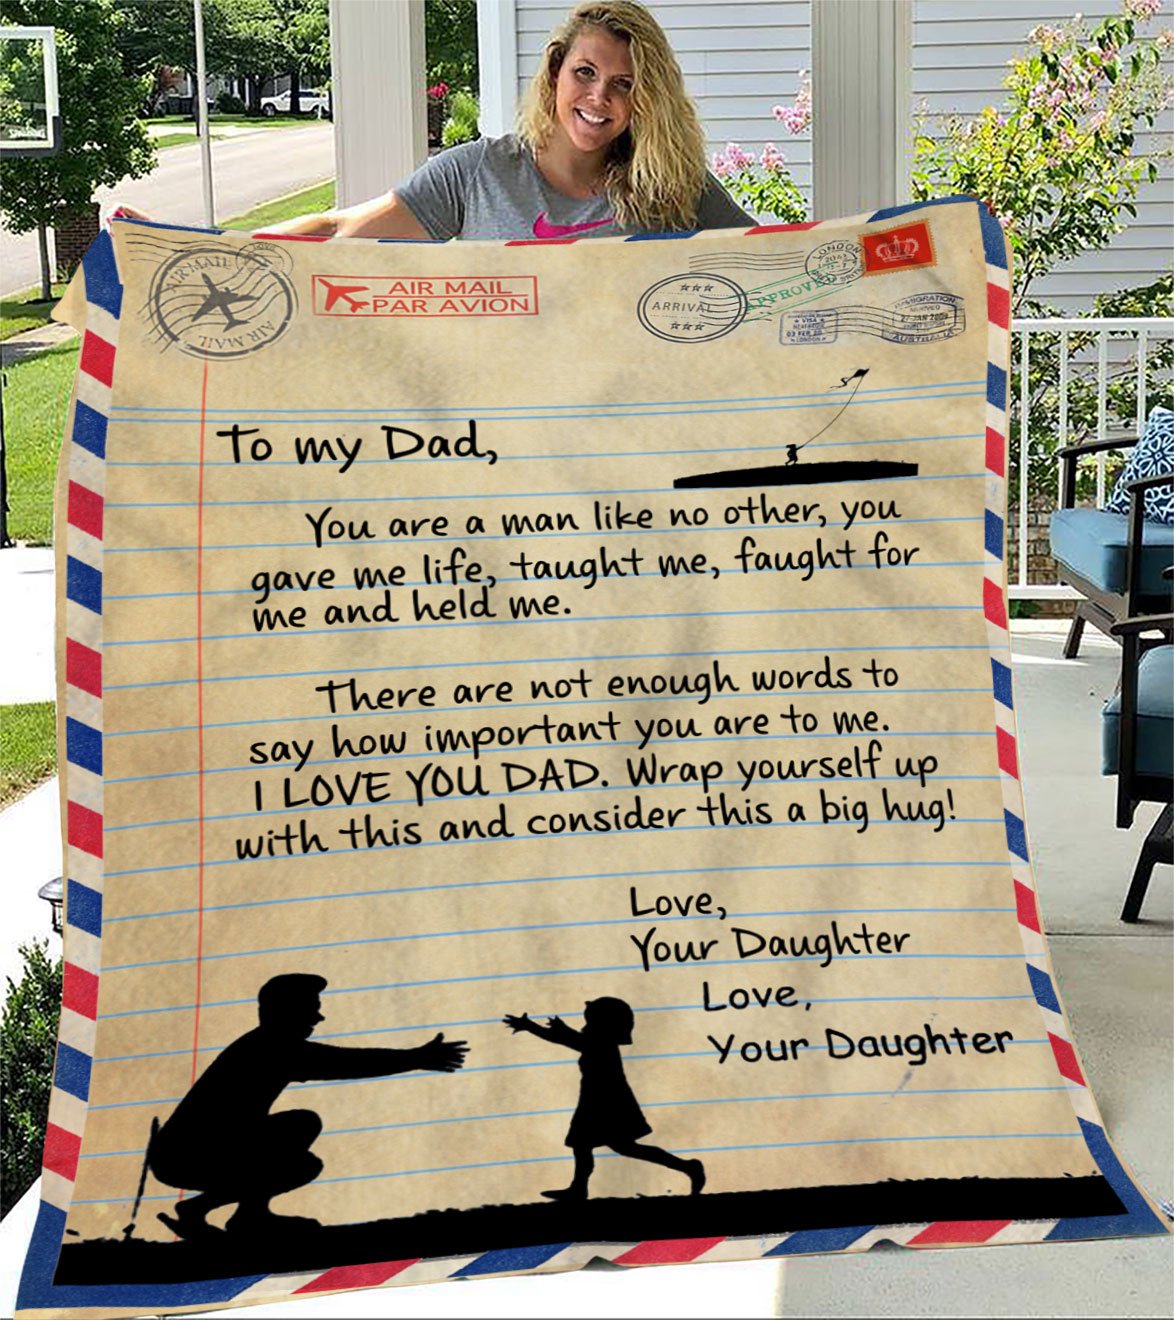 AIR MAIL
AIR MAIL
AIR MAIL
PAR AVION
ARRIVAL
APPROVED
LONDON
IMMIGRATION
27 JAN
AUSTRALIA
VISA
HEATHROW
03 FEB 20
LONDON
To my Dad,
You are a man like no other, you
gave me life, taught me, faught for
me and held me.
There are not enough words to
say how important you are to me.
I LOVE YOU DAD. Wrap yourself up
with this and consider this a big hug!
Love,
Your Daughter
Love,
Your Daughter